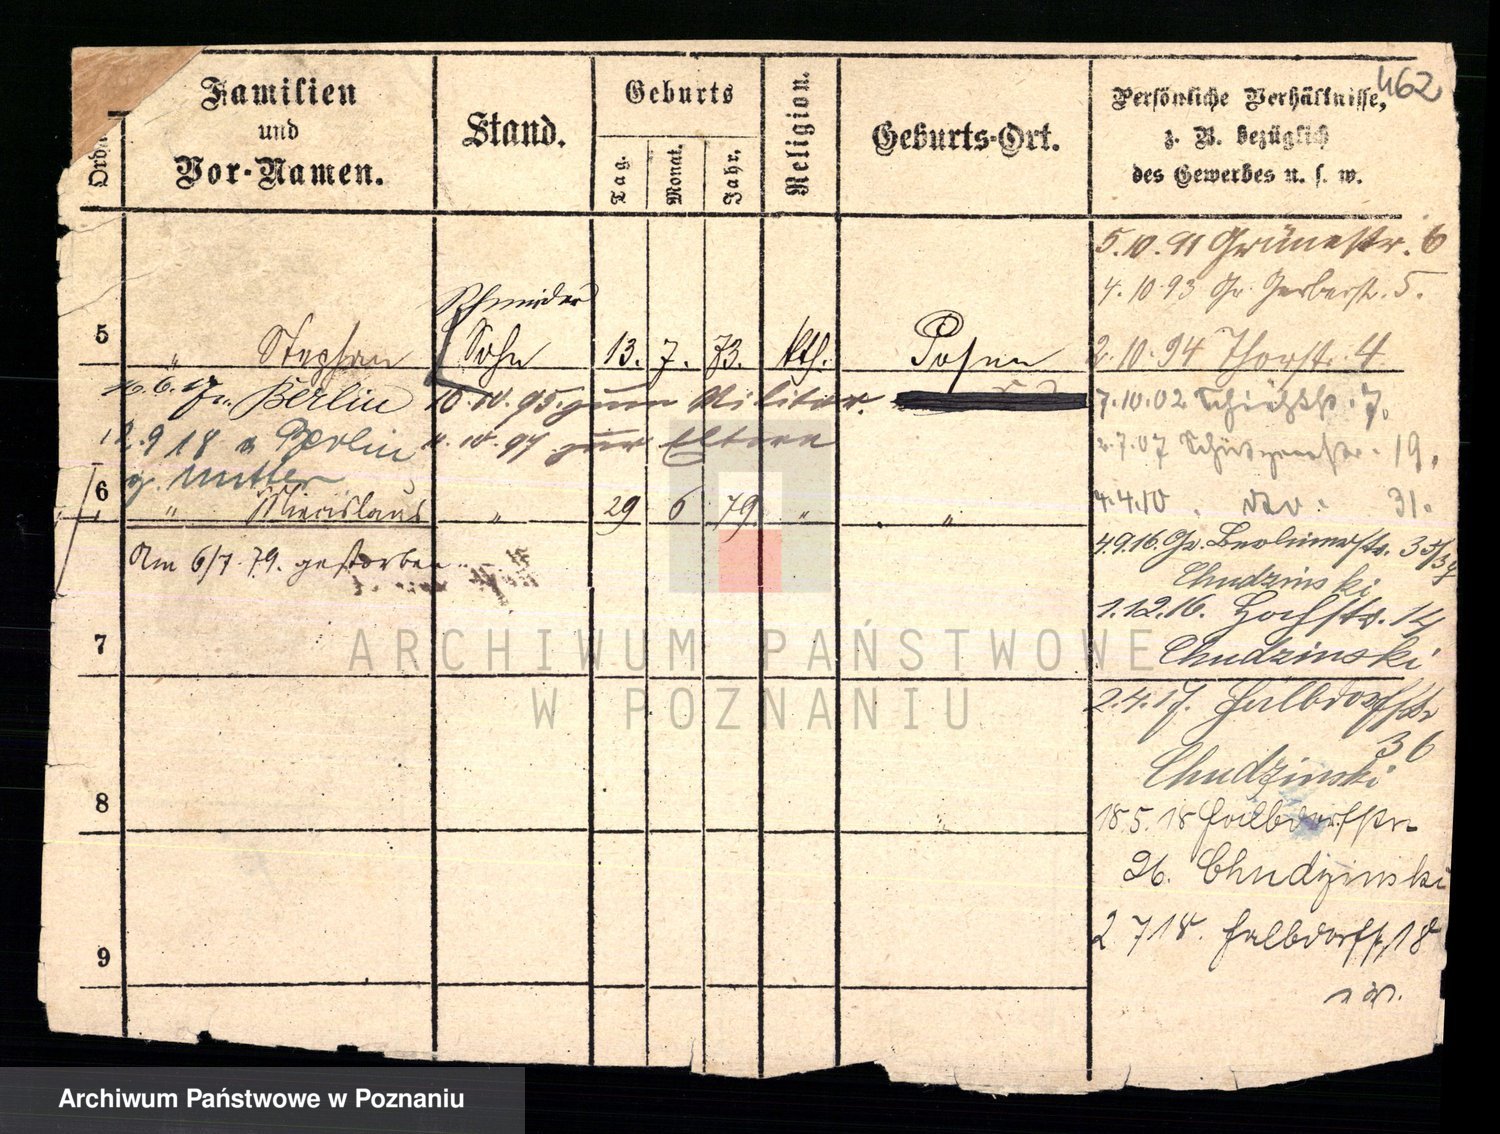 462
Ord
Familien
und
Vor-Namen.
Stand.
Geburts
Tag.
Monat.
Jahr.
Religion.
Geburts-Ort.
Persönliche Verhältnisse,
z. B. bezüglich
des Gewerbes u. s. w.
5.10.91 Grünestr. 6
4.10.93 Gr. Gerberstr. 5.
Schneider
5 " Stephan Sohn 13. 7. 73. kth. Posen
2.10.94 Thorstr. 4
16.6.17 Berlin 10.10.95. zum Militär.
7.10.02 7.
12.9.18 v Berlin 97 zur Eltern
2.7.07 19.
z. Mutter
6 " Miecislaus " 29 6 79 " "
4.4.10. 31.
Am 6/7. 79. gestorben
4.9.16. Gr. Berlinerstr.
Chudzinski
1.12.16. Hochstr. 14
7
Chudzinski
2.4.17. Halbdorfstr
36
Chudzinski
8
18.5.18 Halbdorfstr
26. Chudzinski
2 7 18. Halbdorfstr 18
9
ARCHIWUM PAŃSTWOWE
W POZNANIU
Archiwum Państwowe w Poznaniu